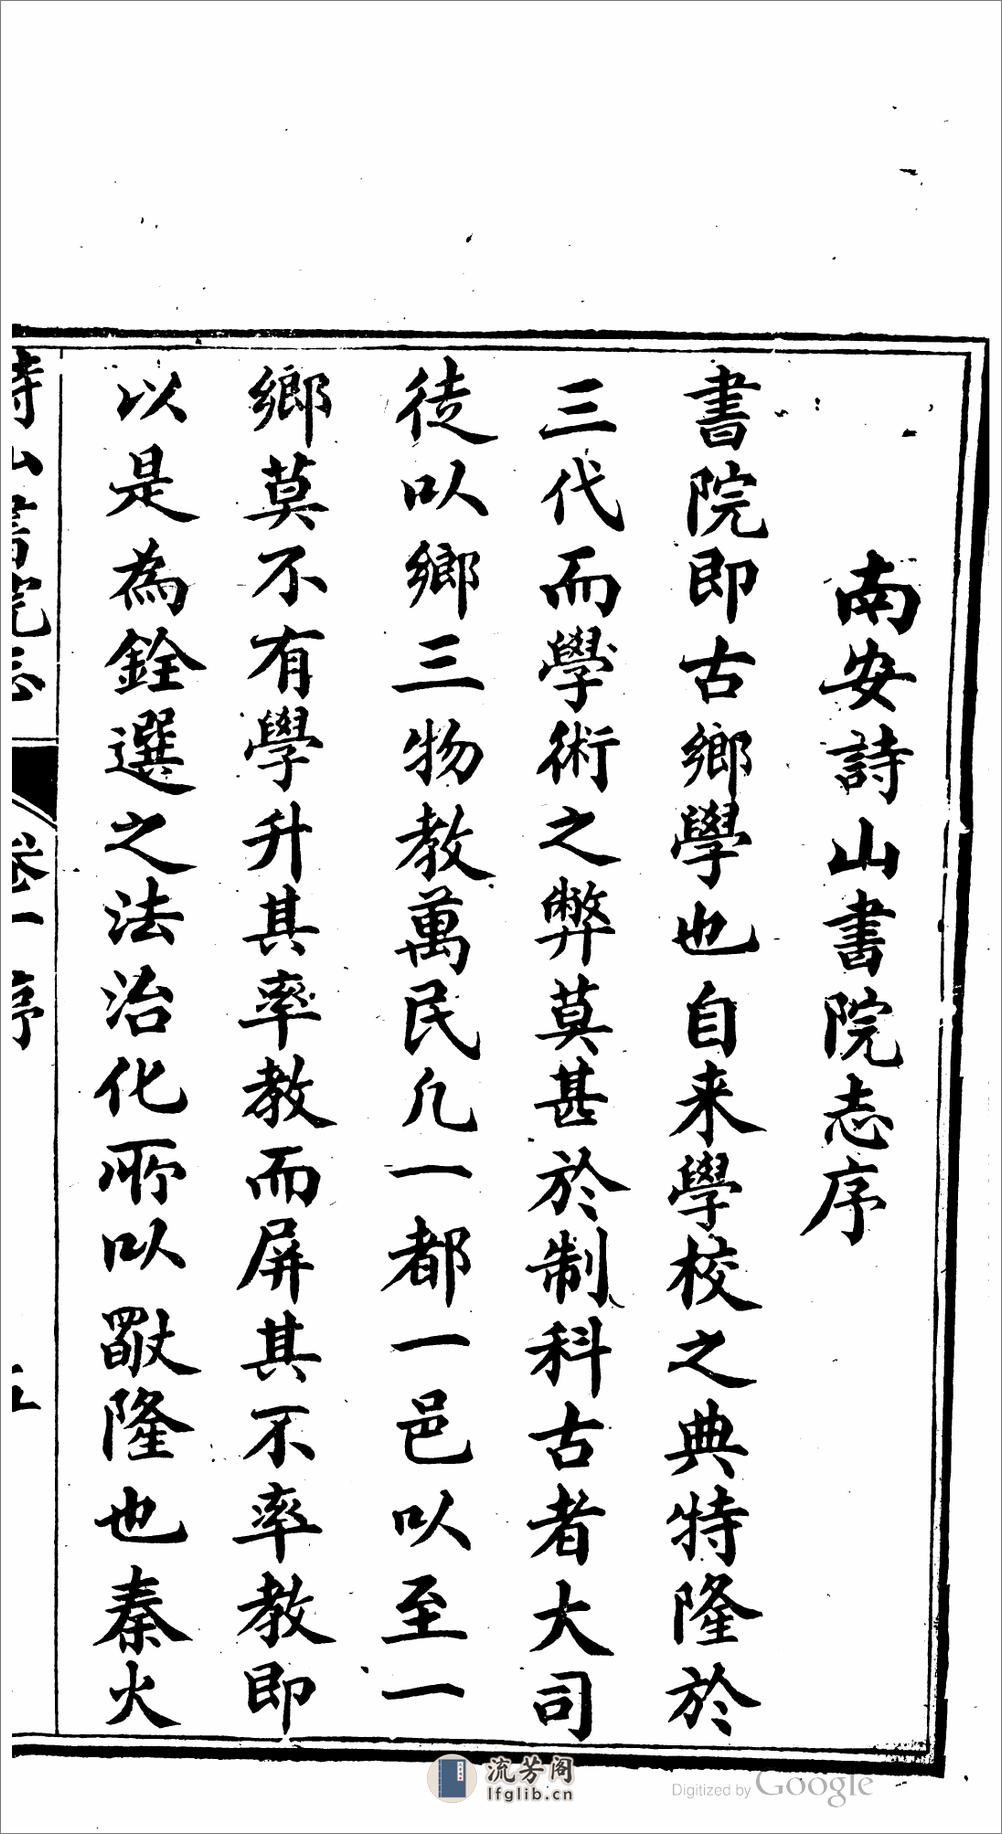 南安詩山書院志序
書院即古鄉學也自来學校之典特隆於
三代而學術之弊莫甚於制科古者大司
徒以鄉三物教萬民凡一都一邑以至一
鄉莫不有學升其率教而屏其不率教即
以是為銓選之法治化所以馭隆也秦火
詩山書院志
卷一序
流芳阁
lfglib.cn
Digitized by Google